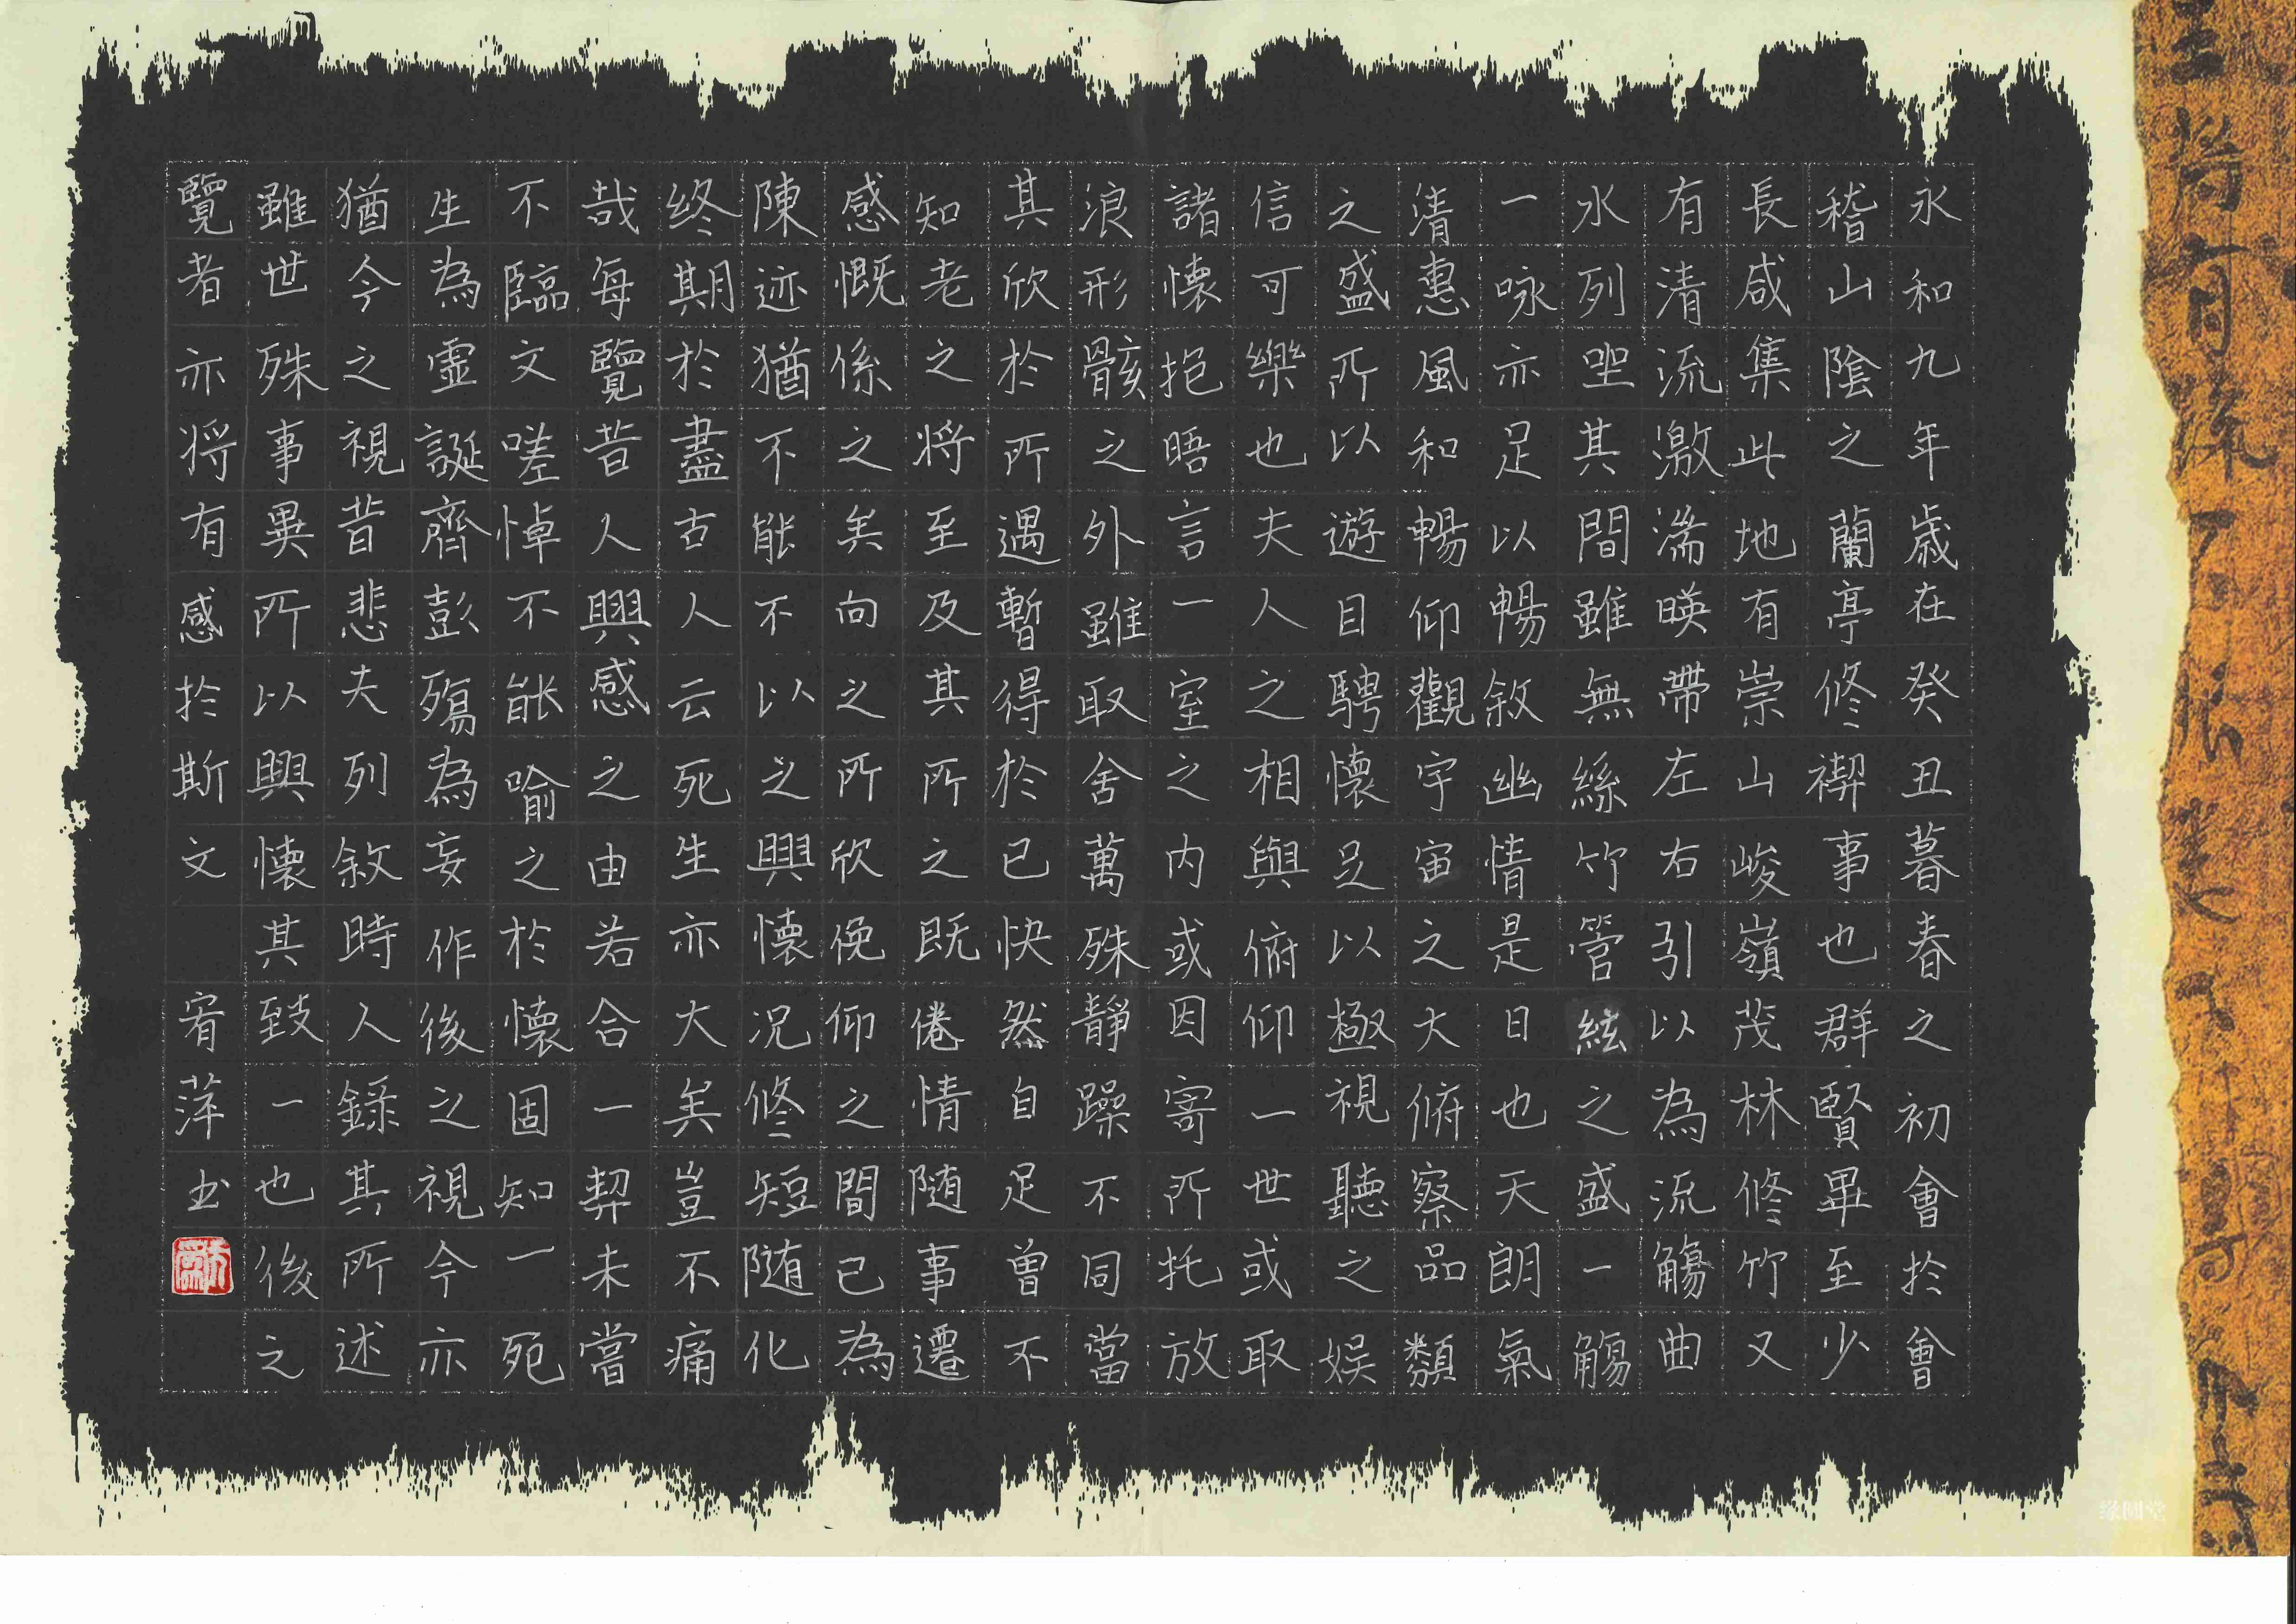 永和九年歲在癸丑暮春之初會於會
稽山陰之蘭亭修禊事也群賢畢至少
長咸集此地有崇山峻嶺茂林修竹又
有清流激湍暎帶左右引以為流觴曲
水列坐其間雖無絲竹管絃之盛一觴
一咏亦足以暢敘幽情是日也天朗氣
清惠風和暢仰觀宇宙之大俯察品類
之盛所以遊目騁懷足以極視聽之娛
信可樂也夫人之相與俯仰一世或取
諸懷抱晤言一室之内或因寄所托放
浪形骸之外雖取舍萬殊靜躁不同當
其欣於所遇暫得於己快然自足曾不
知老之将至及其所之既倦情随事遷
感慨係之矣向之所欣俛仰之間已為
陳迹猶不能不以之興懷况修短随化
終期於盡古人云死生亦大矣豈不痛
哉每覽昔人興感之由若合一契未嘗
不臨文嗟悼不能喻之於懷固知一死
生為虛誕齊彭殤為妄作後之視今亦
猶今之視昔悲夫列敘時人錄其所述
雖世殊事異所以興懷其致一也後之
覽者亦将有感於斯文 宥萍书
缘圆堂